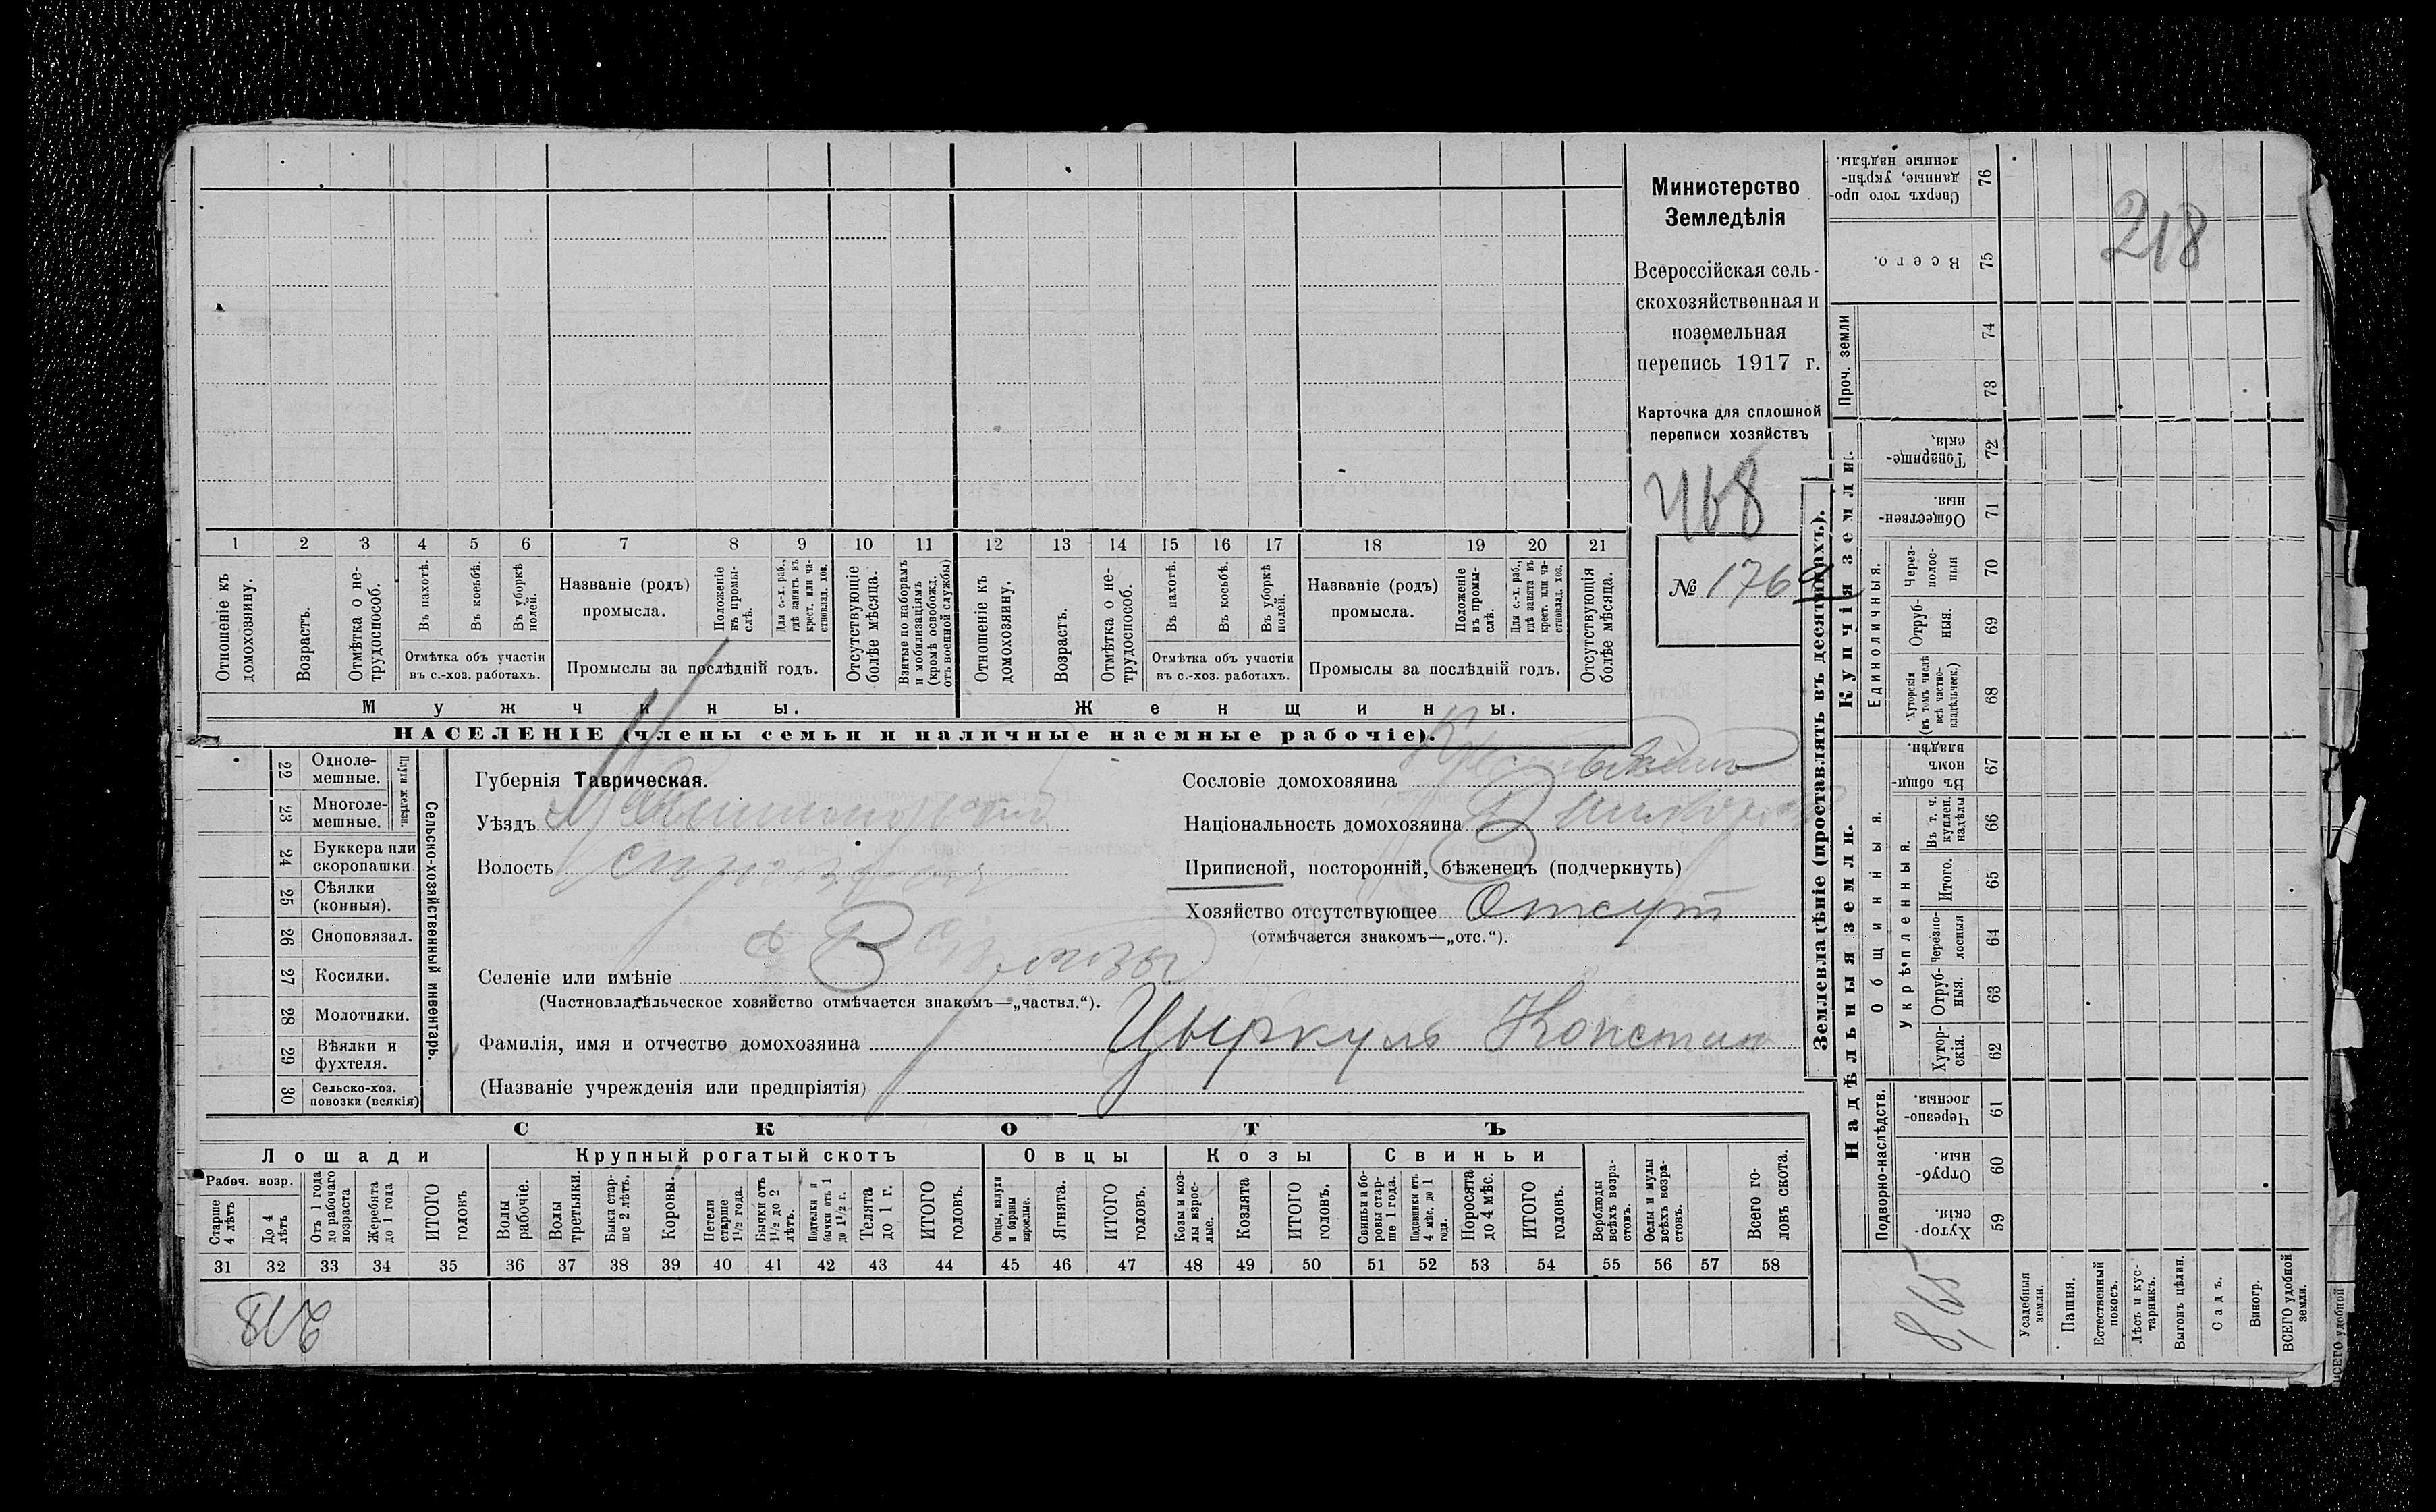 Министерство
Земледѣлія
Всероссійская сель-
скохозяйственная и
поземельная
перепись 1917 г.
Карточка для сплошной
переписи хозяйствъ
468
№ 176
1 2 3 4 5 6 7 8 9 10 11 12 13 14 15 16 17 18 19 20 21
Отношеніе къ домохозяину.
Возрастъ.
Отмѣтка о не-трудоспособ.
Въ пахотѣ.
Въ косьбѣ.
Въ уборкѣ полей.
Отмѣтка объ участіи
въ с.-хоз. работахъ.
Названіе (родъ)
промысла.
Положеніе въ промы-слѣ.
Для с.-х. раб., гдѣ занятъ въ крест. или ча-стновлад. хоз.
Промыслы за послѣдній годъ.
Отсутствующіе болѣе мѣсяца.
Взятые по наборамъ и мобилизаціямъ (кромѣ освобожд. отъ военной службы)
Отношеніе къ домохозяину.
Возрастъ.
Отмѣтка о не-трудоспособ.
Въ пахотѣ.
Въ косьбѣ.
Въ уборкѣ полей.
Отмѣтка объ участіи
въ с.-хоз. работахъ.
Названіе (родъ)
промысла.
Положеніе въ промы-слѣ.
Для с.-х. раб., гдѣ занята въ крест. или ча-стновлад. хоз.
Промыслы за послѣдній годъ.
Отсутствующія болѣе мѣсяца.
Мужчины. Женщины.
НАСЕЛЕНІЕ (члены семьи и наличные наемные рабочіе).
22 Одноле-мешные.
23 Многоле-мешные.
Плуги желѣзн.
24 Буккера или скоропашки.
25 Сѣялки (конныя).
26 Сноповязал.
27 Косилки.
28 Молотилки.
29 Вѣялки и фухтеля.
30 Сельско-хоз. повозки (всякія)
Сельско-хозяйственный инвентарь.
Губернія Таврическая.
Уѣздъ
Волость
Селеніе или имѣніе
(Частновладѣльческое хозяйство отмѣчается знакомъ—„частвл.“).
Фамилія, имя и отчество домохозяина Цыркуль Констан
(Названіе учрежденія или предпріятія)
Сословіе домохозяина
Національность домохозяина
Приписной, посторонній, бѣженецъ (подчеркнуть)
Хозяйство отсутствующее Отсут
(отмѣчается знакомъ—„отс.“).
СКОТЪ
Лошади Крупный рогатый скотъ Овцы Козы Свиньи
Рабоч. возр.
Старше 4 лѣтъ
До 4 лѣтъ
Отъ 1 года до рабочаго возраста
Жеребята до 1 года
ИТОГО головъ
Волы рабочіе.
Волы третьяки.
Быки стар-ше 2 лѣтъ.
Коровы.
Нетели старше 1½ года.
Бычки отъ 1½ до 2 лѣтъ.
Подтелки и бычки отъ 1 до 1½ г.
Телята до 1 г.
ИТОГО головъ.
Овцы, валухи и бараны взрослые.
Ягнята.
ИТОГО головъ.
Козы и коз-лы взрос-лые.
Козлята
ИТОГО головъ.
Свиньи и бо-ровы стар-ше 1 года.
Подсвинки отъ 4 мѣс. до 1 года.
Поросята до 4 мѣс.
ИТОГО головъ.
Верблюды всѣхъ возра-стовъ.
Ослы и мулы всѣхъ возра-стовъ.
Всего го-ловъ скота.
31 32 33 34 35 36 37 38 39 40 41 42 43 44 45 46 47 48 49 50 51 52 53 54 55 56 57 58
218
Землевладѣніе (проставлять въ десятинахъ).
Купчія земли.
Надѣльныя земли.
Проч. земли
Единоличныя.
Общинныя.
Укрѣпленныя.
Подворно-наслѣдств.
Сверхъ того про-данные, укрѣп-ленные надѣлы. 76
Всего. 75
74
73
Товарище-скія, 72
Обществен-ныя. 71
Через-полос-ныя 70
Отруб-ныя. 69
Хуторскія (въ томъ числѣ всѣ частно-владѣльческ.) 68
Въ общи-номъ владѣн. 67
Въ т. ч. куплен. надѣлы 66
Итого. 65
Черезпо-лосныя 64
Отруб-ныя. 63
Хутор-скія. 62
Черезпо-лосныя. 61
Отруб-ныя. 60
Хутор-скія. 59
Усадебныя земли.
Пашня.
Естественный покосъ.
Лѣсъ и кус-тарникъ.
Выгонъ цѣлин.
Садъ.
Виногр.
ВСЕГО удобной земли.
218
ВСЕГО удобной